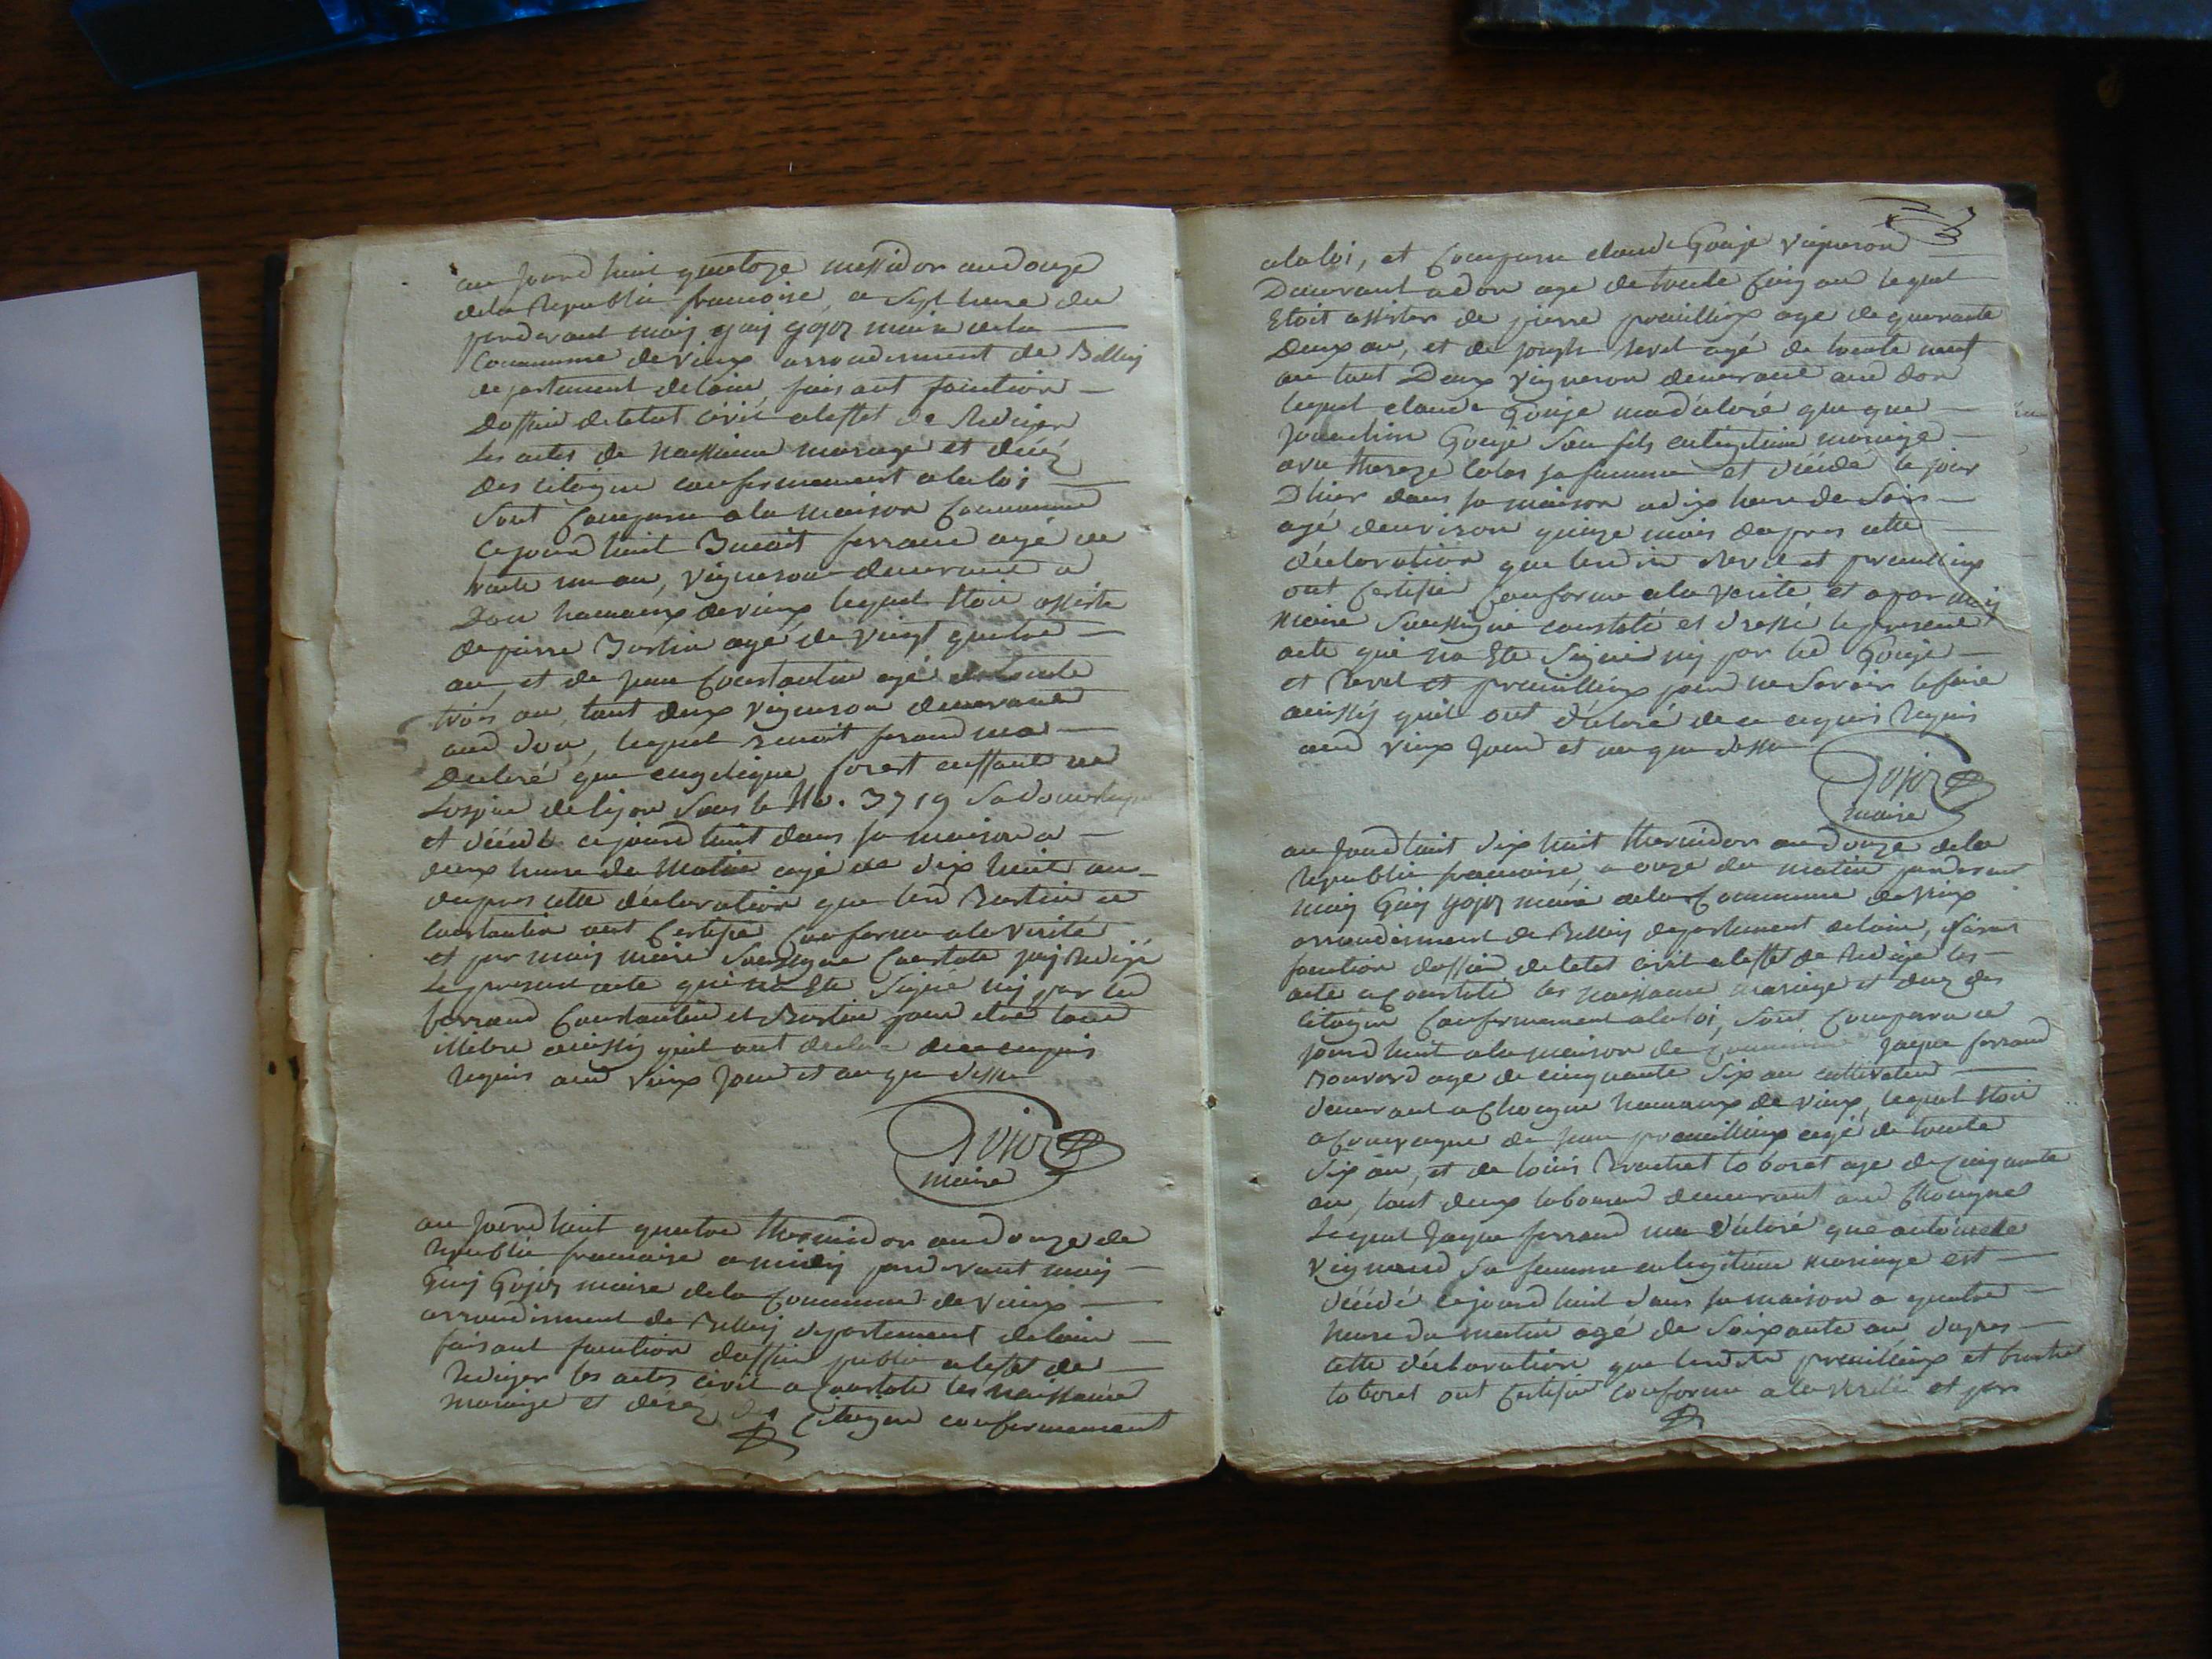 au Jourd huit quatoze messidor an douze
dela Republic francoise, a Sept heure du
pardevant moij guij gojoz maire dela
Commune de vieux arrondisment de Belleij
departement delain, faisant fonction
Dofficie detetat civil aleffet de Rediger
Les actes de naissance mariage et décéz
des citoyen conformement alaloi
Sont Comparu ala maison Commune
cejourd huit Benoit ferrand agé de
trente un an, vigneron demeurant a
Don hameaux de vieux lequel Etoit assisté
de pierre Bertin agé de vingt quatre
an, et de jean Constantin agé de trente
trois an, tout deux vigneron demeurant
aud don, lequel Benoit ferand ma
Declaré que angelique forest enffant de
Lospice deligon Sous le No. 3719 Sa domestique
et décédé cejourd huit dans sa maison a
deux heure du Matin agé de dix huit an
dapres cette déclaration que lesd Bertin et
Constantin ont Certifié Conforme ala verité
et par moij maire Soussigné Constaté jaij Redigé
Le present acte qui na Ete Signé nij par led
ferrand Constantin et Bertin pour etre tout
illetré ainssij quil ont declaré dece enquis
Requis aud vieux Jour et an que dessu
Gojoz
maire
au Jourd huit quatre thermidor an douze de
Republic francaise a midij pardevant moij
Guij Gojoz maire dela Commune de vieux
arrondisment de Belleij departement delain
faisant fonction doffice public aleffet de
Rediger les actes civil a Constaté les naissance
mariage et décéz des citoyen conformement
alaloi, et Comparu claude Gouje vigneron
Demeurant a don age de trente Cinq an lequel
Etoit assister de pierre preuilleux age de quarante
Deux an, et de joseph Revel agé de trente neuf
an tout Deux vigneron demeurant aud don
lequel claude Gouje mad'claré que que
Joaachim Gouje Son fils enlegitime mariage
avec thereze Colas sa femme et décédé le jour
D'hier dans sa maison adix heure de Soir
agé d'environ quinze mois dapres cette
déclaration que lesdis Revel et preuilleux
ont Certifié Conforme ala verité et apar moij
maire Soussigné constaté et dressé le present
acte qui na Ete Signé nij par led Gouje
et Revel et preuilleux pour ne Savoir lefaire
ainssij quil ont d'claré de ce enquis Requis
aud vieux Jour et an que dessu
Gojoz
maire
au Jourd huit dix huit thermidor an douze dela
Republic francaise, a onze du matin pardevant
moij Guij gojoz maire dela Commune de vieux
arrondisment de Belleij departement delain, faisant
fonction doffice deletat civil aleffet de Redigé les
acte a Constaté les naissance mariage et decez des
citoyen Conformement alaloi, sont Comparu ce
jourd huit ala maison de Commune Jaque ferrand
Bouvard age de cinquante Six an cultivateur
demeurant a Chogne hameaux de vieux, lequel Etoit
a Compagne de jean preuilleux agé de trente
Six an, et de louis Brachet laboret age de Cinquante
an, tout deux laboureur demeurant aud Chougne
Lequel Jaque ferrand ma d'claré que antoinette
vignand Sa femme en legitime mariage est
décédé cejourd huit dans sa maison a quatre
heure du matin agé de Soixante an dapres
cette déclaration que lesdits preuilleux et brachet
laboret ont Certifié Conforme ala verité et par